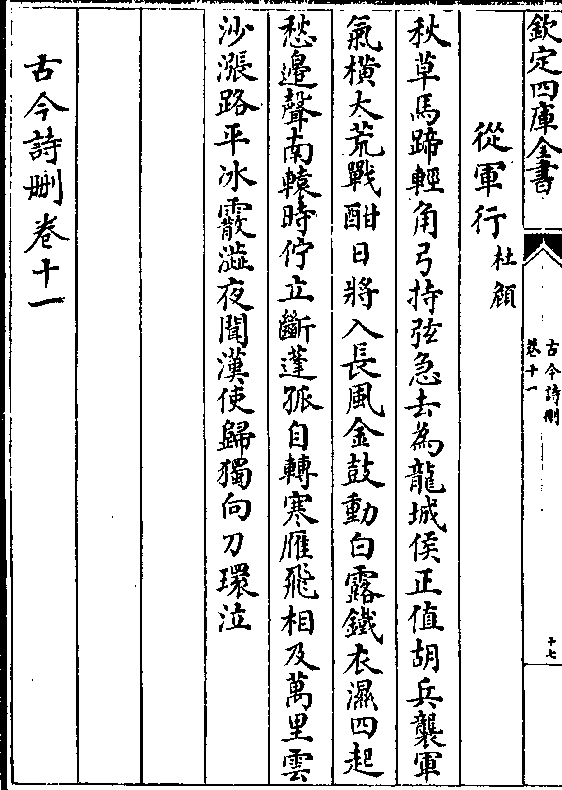 欽定四庫全書
古今詩刪
卷十一
十七
從軍行 杜頠
秋草馬蹄輕角弓持弦急去為龍城侯正值胡兵襲軍
氣橫大荒戰酣日將入長風金鼓動白露鐵衣濕四起
愁邊聲南轅時佇立斷蓬孤自轉寒雁飛相及萬里雲
沙漲路平冰霰澁夜聞漢使歸獨向刀環泣
古今詩刪卷十一